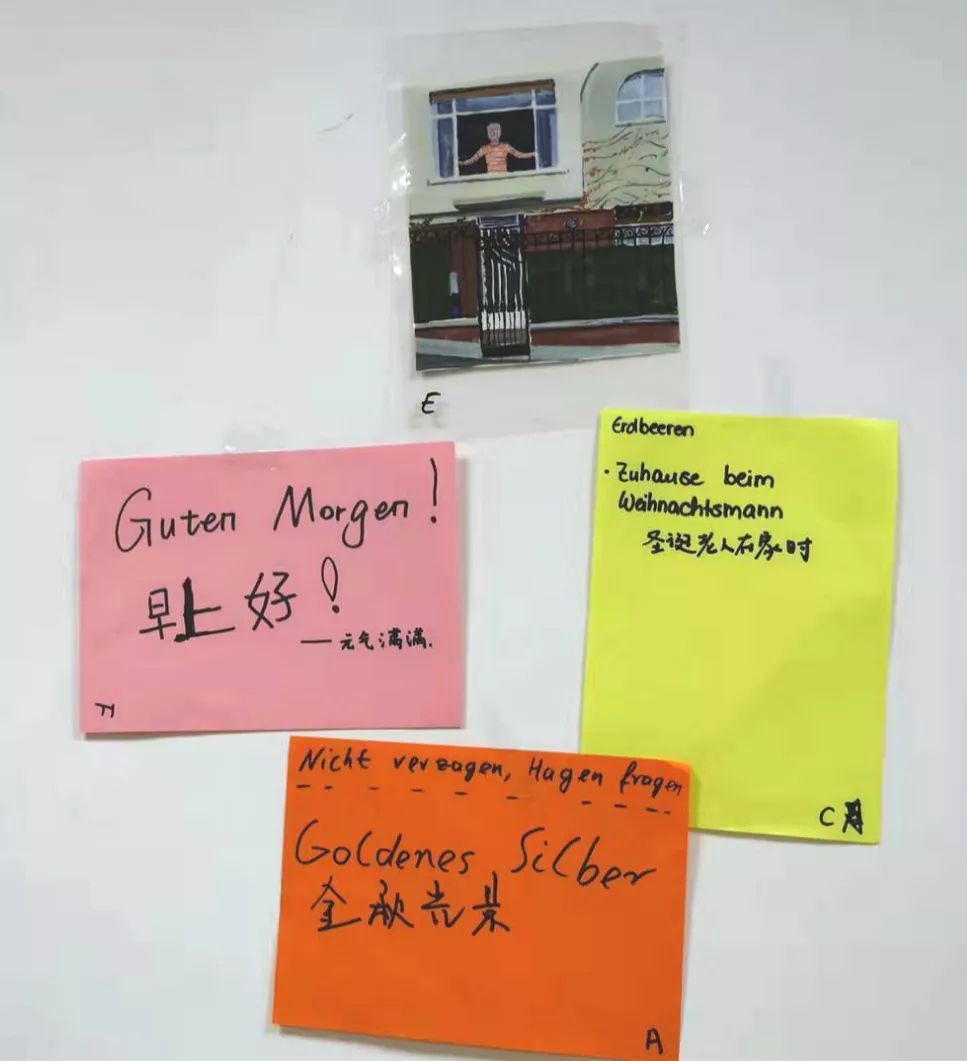 E
Guten Morgen!
早上好!
— 元气满满.
F
Erdbeeren
· Zuhause beim
Weihnachtsmann
圣诞老人在家时
C
Nicht verzagen, Hagen fragen
Goldenes Silber
金秋光景
A